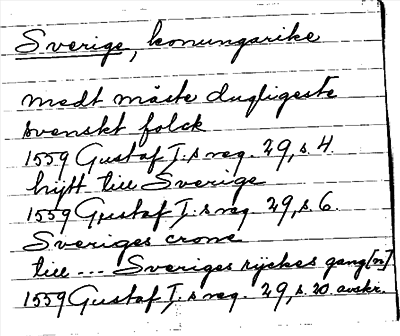 Sverige, konungarike
medt måste dugligeste
svenskt folck
1559 Gustaf I:s reg. 29, s. 4.
hijtt till Sverige
1559 Gustaf I:s reg. 29, s. 6.
Sveriges crone
till --- Sveriges rijckes gang[n]
1559 Gustaf I:s reg. 29, s. 20. avskr.